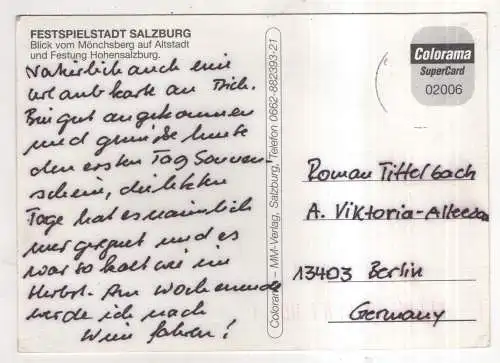 FESTSPIELSTADT SALZBURG
Blick vom Mönchsberg auf Altstadt
und Festung Hohensalzburg.
Natürlich auch eine
Urlaubskarte an Dich.
Bin gut angekommen
und genieße heute
den ersten Tag Sonnen-
schein, die letzten
Tage hat es nämlich
nur geregnet und es
war so kalt wie im
Herbst. Am Wochenende
werde ich nach
Wien fahren!
Colorama – MM-Verlag, Salzburg, Telefon 0662-882393-21
Colorama
SuperCard
02006
Roman Tittelbach
A. Viktoria-Alleeda
13403 Berlin
Germany